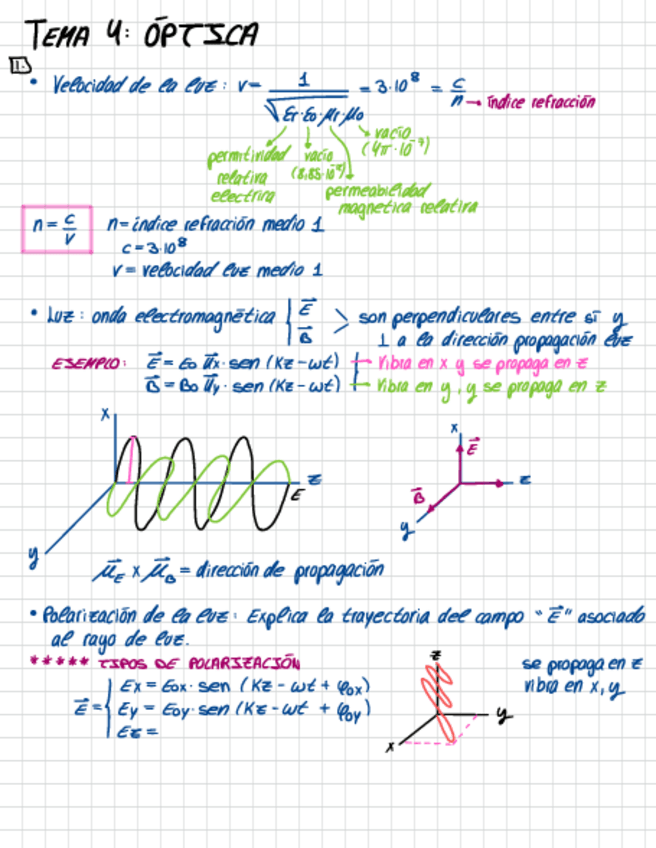 TEMA 4: ÓPTICA
1.
• Velocidad de la luz: v = 1 / √(εr·εo·μr·μo) = 3·10⁸ = c/n → índice refracción
permitividad relativa electrica
vacío (8,85·10⁻¹²)
vacío (4π·10⁻⁷)
permeabilidad magnetica relativa
n = c/v n = índice refracción medio 1
c = 3·10⁸
v = velocidad luz medio 1
• Luz: onda electromagnética | E⃗ B⃗ > son perpendiculares entre sí y
⊥ a la dirección propagación luz
ESEMPLO: E⃗ = Eo u⃗x · sen (Kz - wt) ← Vibra en x y se propaga en z
B⃗ = Bo u⃗y · sen (Kz - wt) ← Vibra en y, y se propaga en z
x
z
E
y
x
E⃗
z
B⃗
y
μ⃗E x μ⃗B = dirección de propagación
• Polarización de la luz: Explica la trayectoria del campo "E⃗" asociado
al rayo de luz.
***** TIPOS DE POLARIZACIÓN
E⃗ = Ex = Eox · sen (Kz - wt + φox)
Ey = Eoy · sen (Kz - wt + φoy)
Ez =
z
y
x
se propaga en z
vibra en x, y